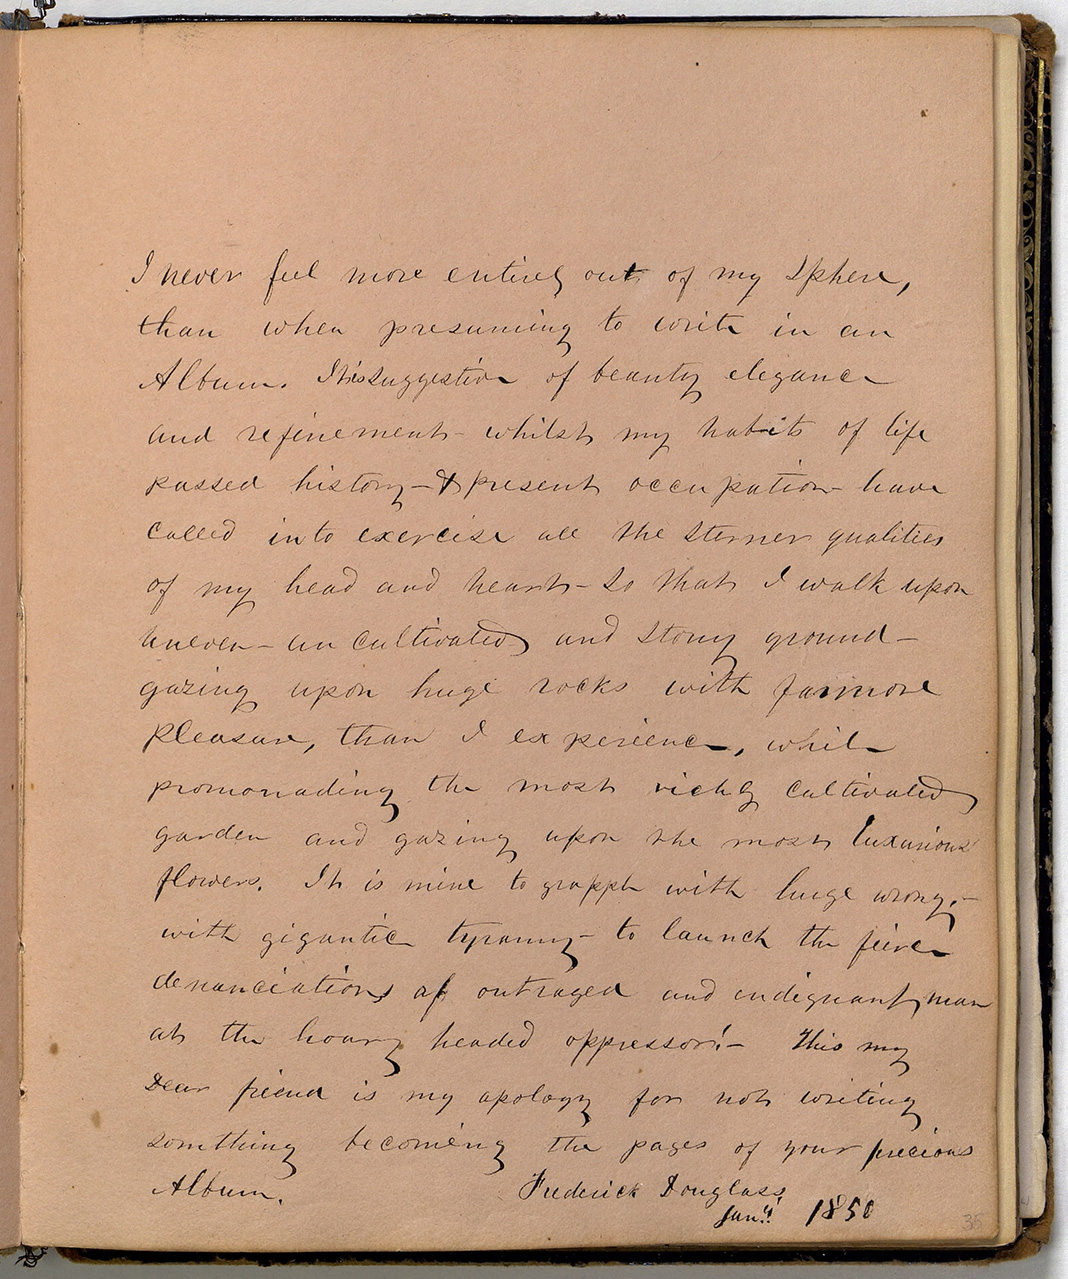 I never feel more entirely out of my Sphere,
than when presuming to write in an
Album. Itis suggestive of beauty elegance
and refinement - whilst my habits of life
passed history - & present occupation - have
called into exercise all the sterner qualities
of my head and heart - so that I walk upon
uneven - uncultivated and stony ground -
gazing upon huge rocks with far more
pleasure, than I experience, while
promonading the most richly cultivated
garden and gazing upon the most luxurious
flowers. It is mine to grapple with huge wrong, -
with gigantic tyranny - to launch the fierce
denunciations of outraged and indignant man
at the hoary headed oppressor! - This my
Dear friend is my apology for not writing
something becoming the pages of your precious
Album. Frederick Douglass
Jany 1850